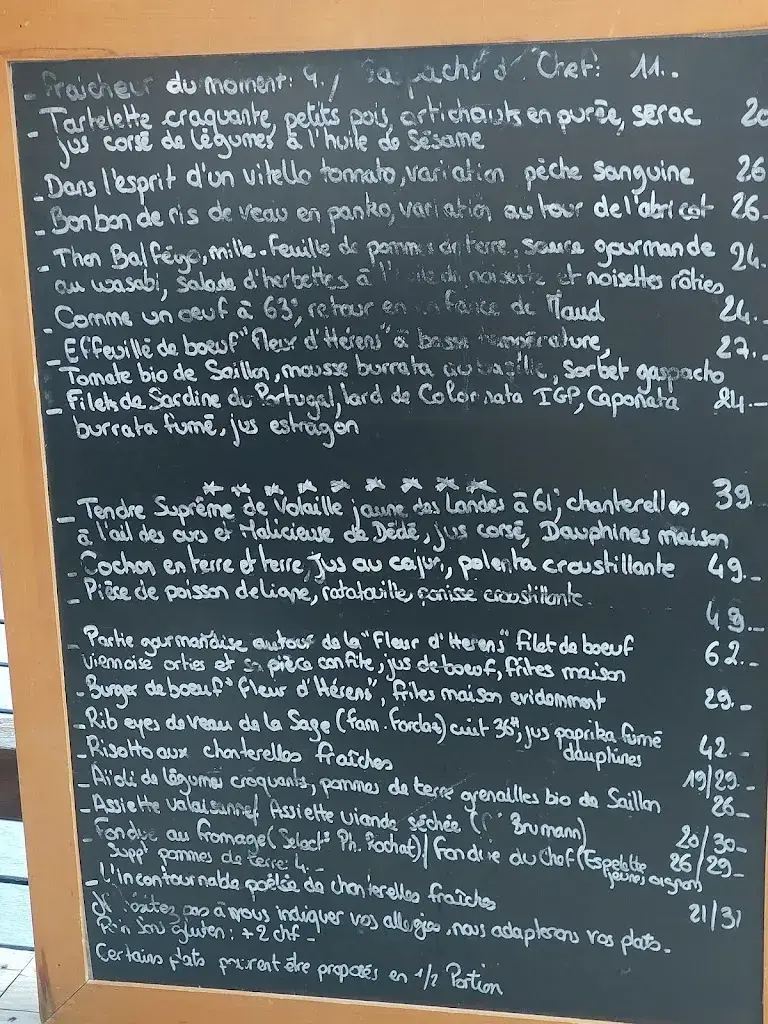 - Fraîcheur du moment: 9./ Gaspacho d' Chef: 11..
- Tartelette craquante, petits pois, artichauts en purée, sérac 20
jus corsé de légumes à l'huile de Sésame
- Dans l'esprit d'un vitello tonnato, variation pêche sanguine 26
- Bonbon de ris de veau en panko, variation autour de l'abricot 26.-
- Thon Balfégo, mille-feuille de pommes de terre, sauce gourmande 24.-
au wasabi, salade d'herbettes à l'huile de noisette et noisettes rôties
- Comme un oeuf à 63°, retour en enfance de Maud 24.-
- Effeuillé de boeuf "Fleur d'Hérens" à basse température, 27.-
Tomate bio de Saillon, mousse burrata au basilic, Sorbet gaspacho
- Filets de Sardine du Portugal, lard de Colonnata IGP, Caponata 24.-
burrata fumé, jus estragon
- Tendre Suprême de Volaille jaune des Landes à 61°, chanterelles 39
à l'ail des ours et Malicieuse de Dédé, jus corsé, Dauphines maison
- Cochon en terre et terre, jus au cajun, polenta croustillante 49.-
- Pièce de poisson de ligne, ratatouille, panisse croustillante.
49.-
- Partie gourmandise autour de la "Fleur d'Herens" filet de boeuf 62.-
viennoise orties et sa pièce confite, jus de boeuf, frites maison
- Burger de boeuf "Fleur d'Hérens", frites maison evidemment 29.-
- Rib eyes de veau de la Sage (fam. Forclaz) cuit 36H, jus paprika fumé 42.-
dauphines
- Risotto aux chanterelles fraîches 19/29.-
- Aïoli de légumes croquants, pommes de terre grenailles bio de Saillon 26-
- Assiette valaisanne/ Assiette viande séchée ( Brumann) 20/30-
- Fondue au fromage (Select° Ph. Rochat) / Fondue du Chef (Espelette 26/29-
jeunes oignons
Suppt pommes de terre: 4.-
- L'incontournable poêlée de chanterelles fraîches 21/31
N'hésitez pas à nous indiquer vos allergies, nous adapterons vos plats.
Pain Sans gluten: +2 chf-
Certains plats peuvent être proposés en 1/2 Portion